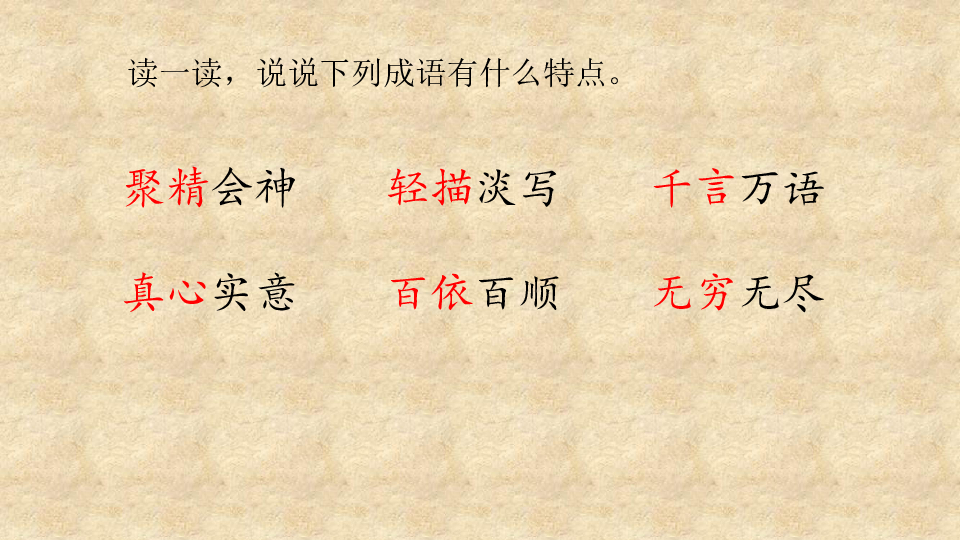 读一读，说说下列成语有什么特点。
聚精会神 轻描淡写 千言万语
真心实意 百依百顺 无穷无尽